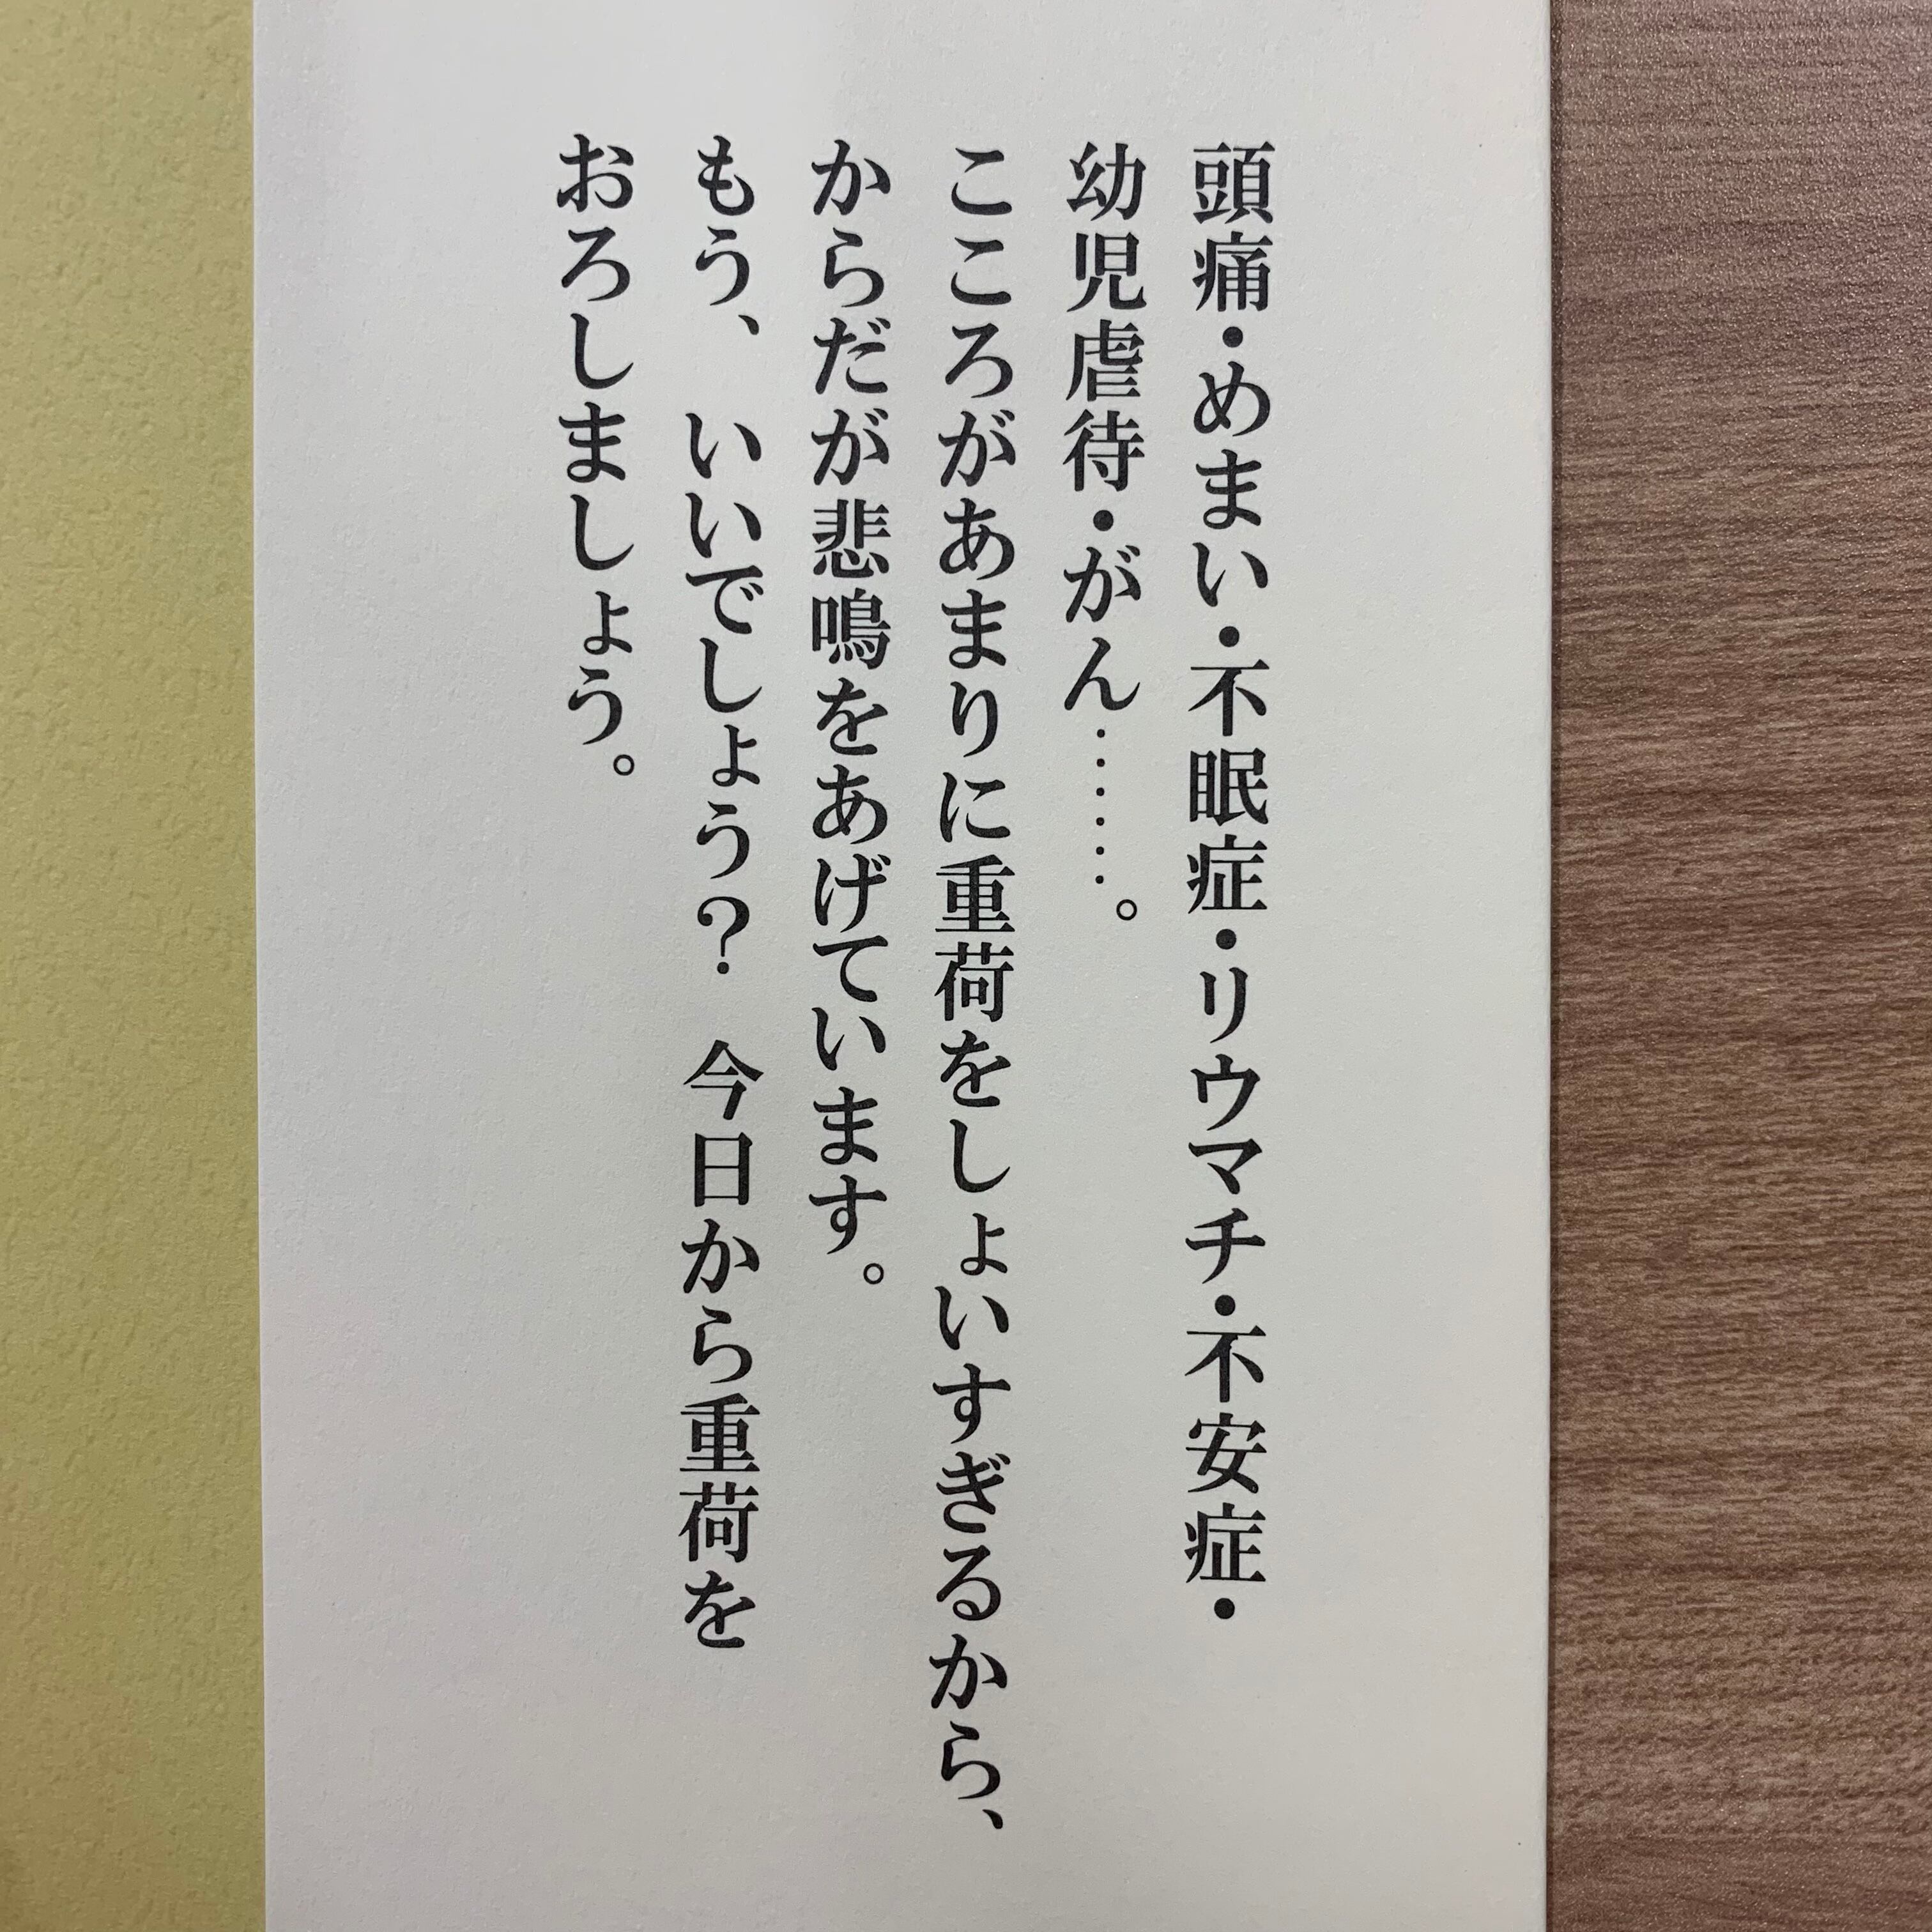 頭痛・めまい・不眠症・リウマチ・不安症・
幼児虐待・がん……。
こころがあまりに重荷をしょいすぎるから、
からだが悲鳴をあげています。
もう、いいでしょう？　今日から重荷を
おろしましょう。